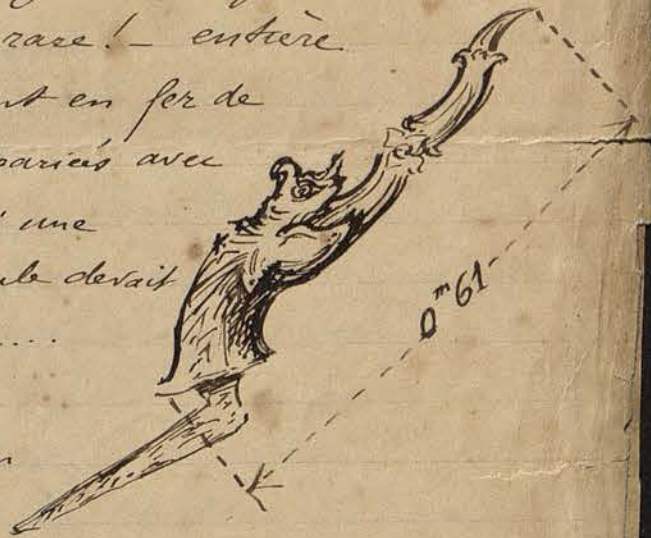 rare! - entière
nt en fer de
pariés avec
une
ule devait
....
0m 61